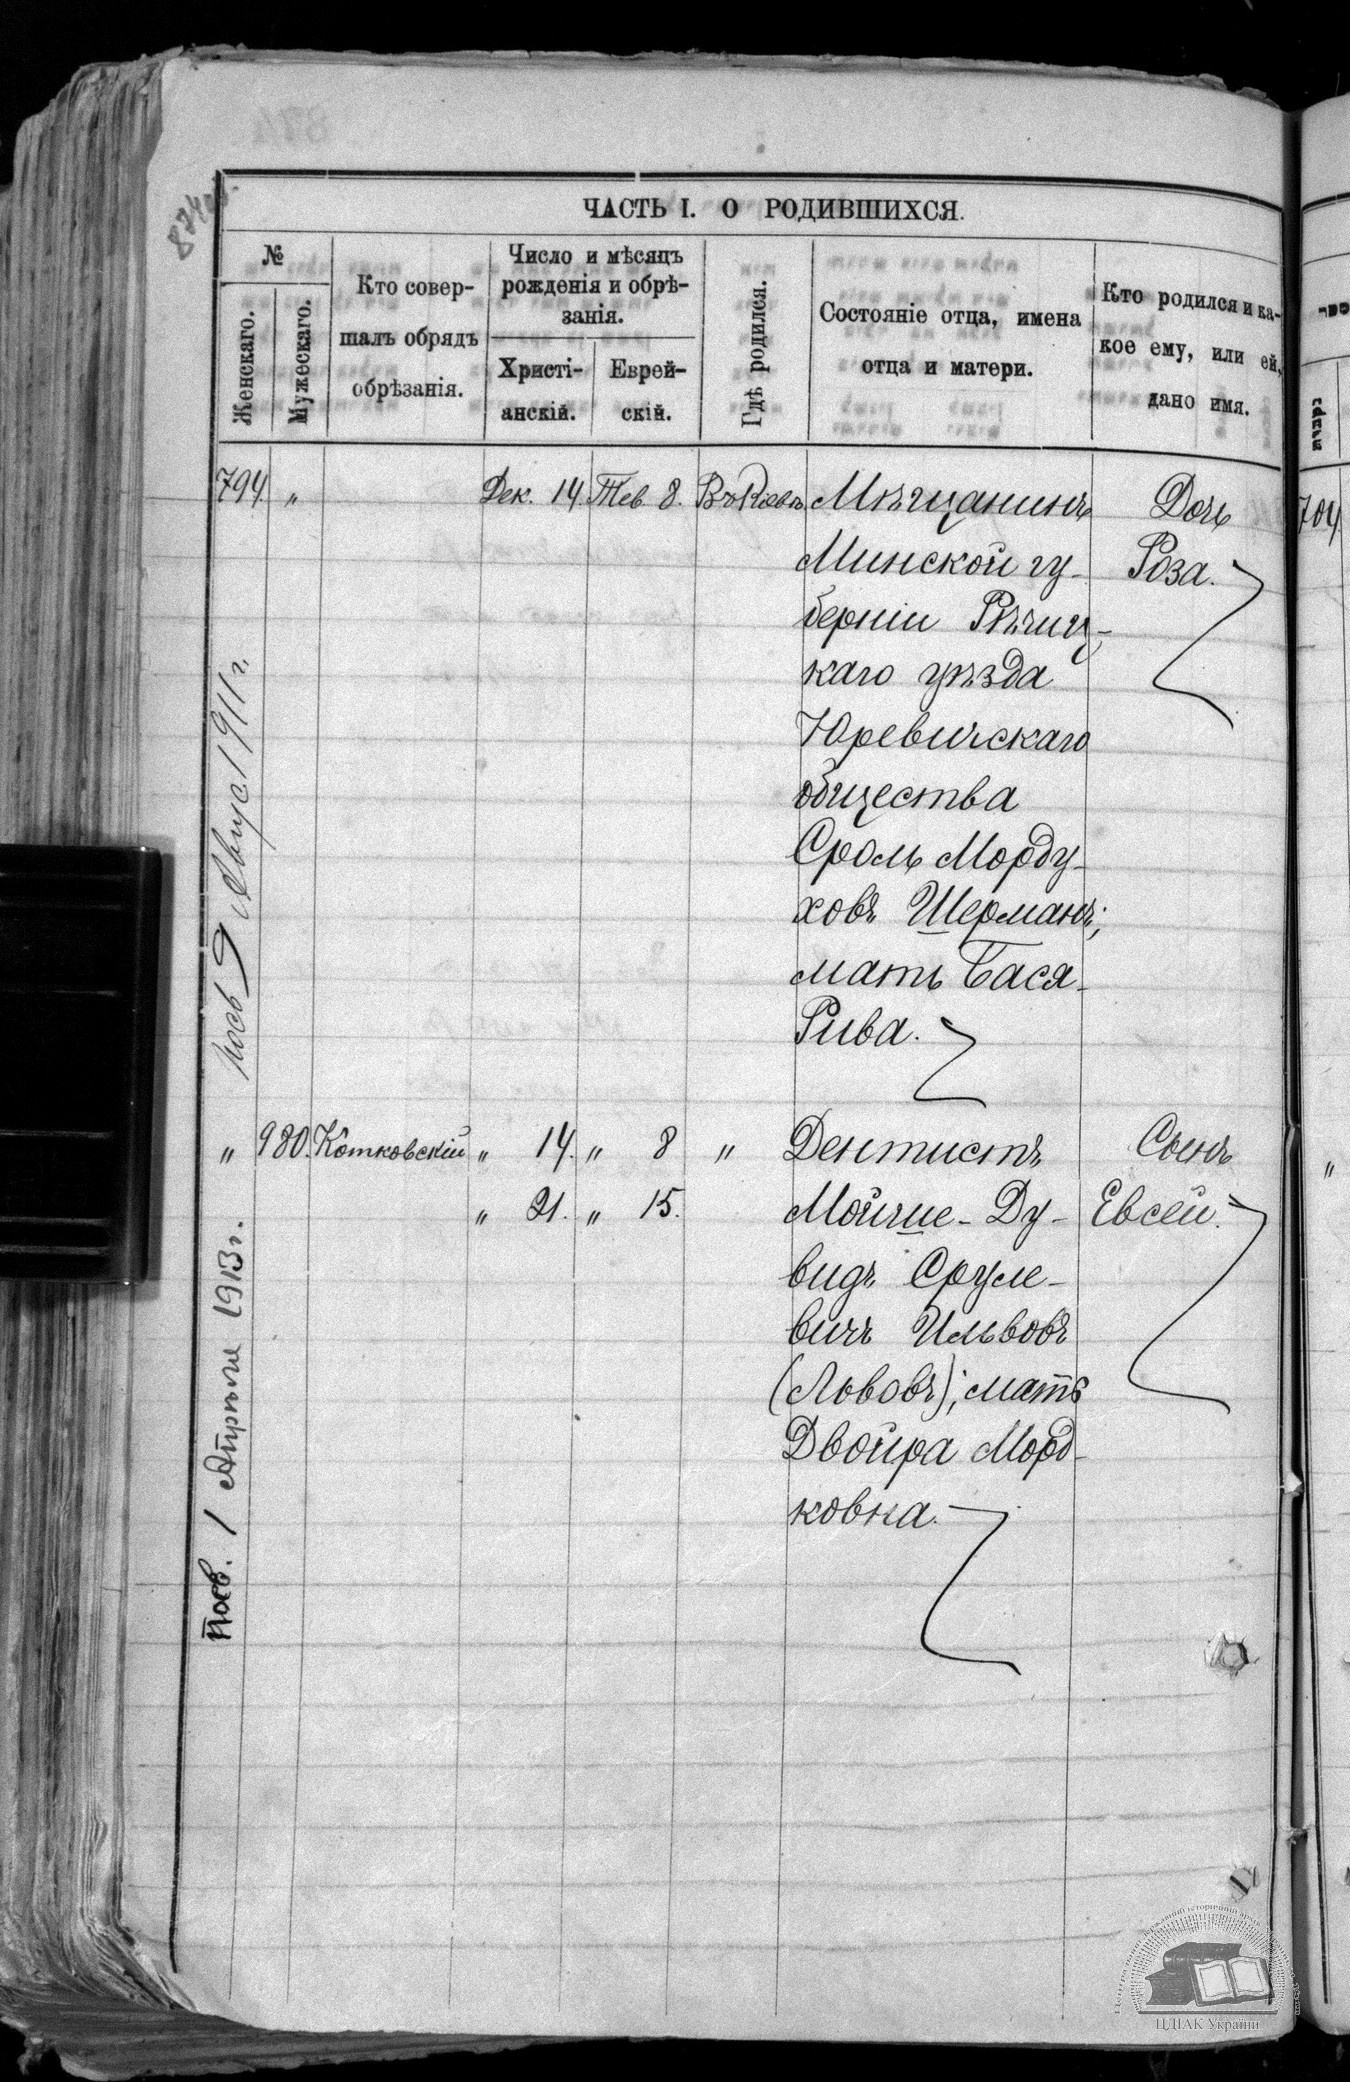 874 об.
ЧАСТЬ I. О РОДИВШИХСЯ.
№
Женскаго.
Мужескаго.
Кто совер-
шалъ обрядъ
обрѣзанія.
Число и мѣсяцъ
рожденія и обрѣ-
занія.
Христі-
анскій.
Еврей-
скій.
Гдѣ родился.
Состояніе отца, имена
отца и матери.
Кто родился и ка-
кое ему, или ей,
дано имя.
794 „ Дек. 14. Тев. 8. Въ Кіевѣ Мѣщанинъ Дочь
Минской гу- Роза.
берніи Рѣчиц-
каго уѣзда
Юревичскаго
общества
Сроль Морду-
ховъ Шерманъ;
мать Бася-
Рива.
„ 980. Котковскій „ 14. „ 8 „ Дентистъ Сынъ
„ 21. „ 15. Мойше-Ду- Евсей.
видъ Сруле-
вичъ Ильвовъ
(Львовъ); мать
Двойра Морд-
ковна.
9 Август 1911 г.
1 Апрѣля 1913 г.
704
„
ЦДІАК України